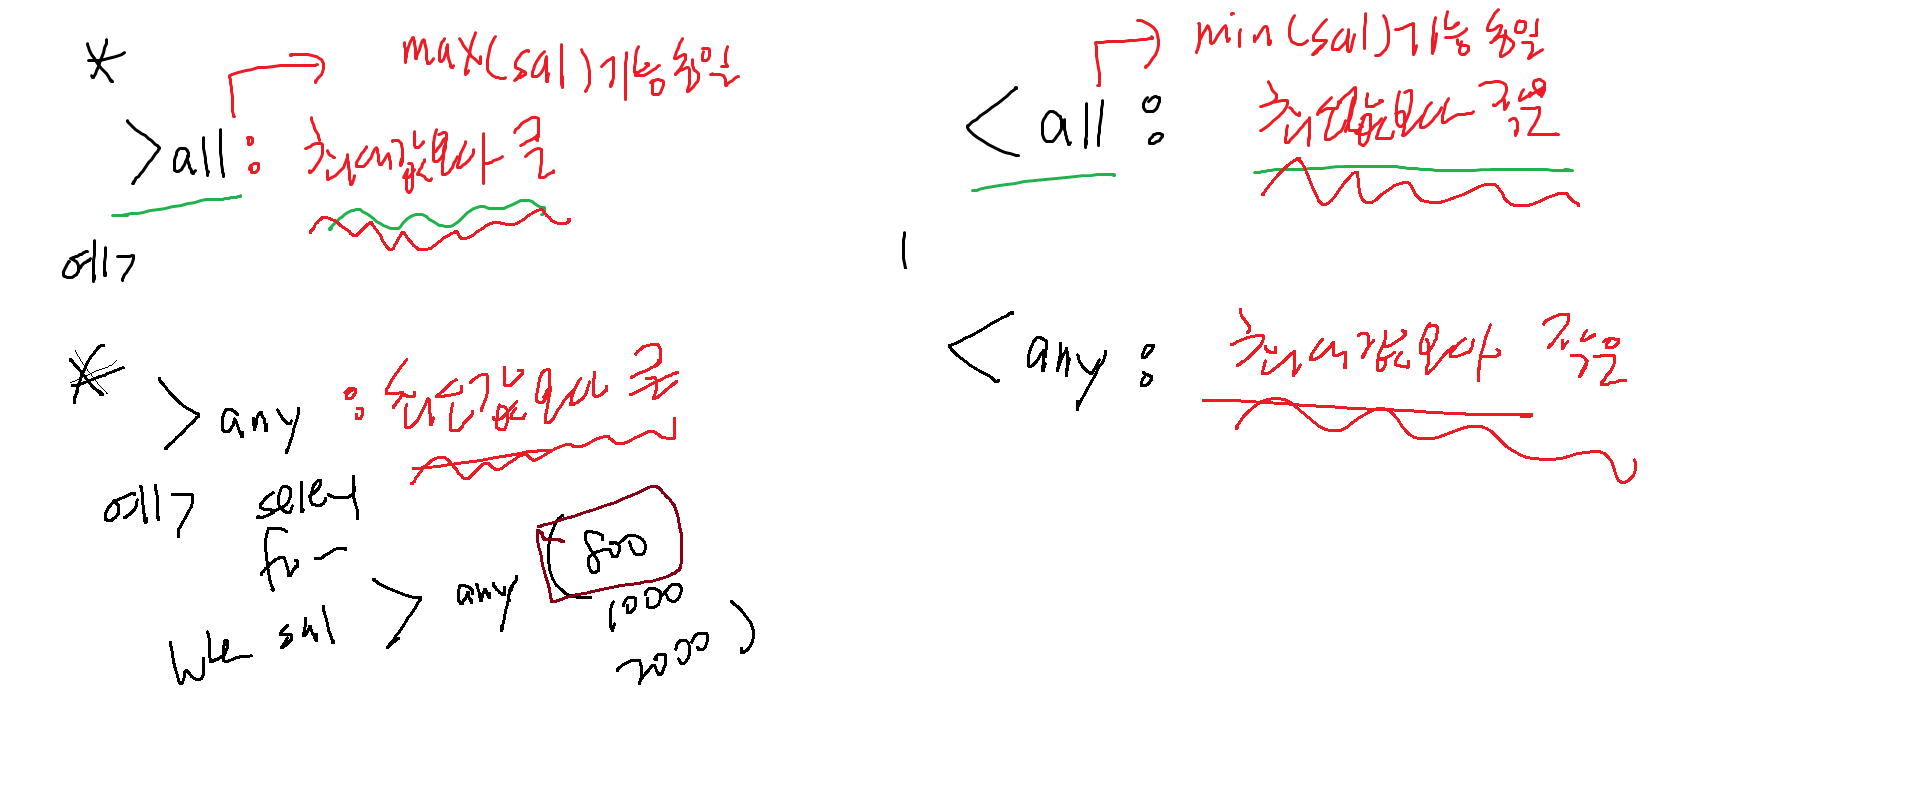 * max(sal)기능 동일
>all : 최대값보다 큰
예>
* >any : 최소값보다 큰
예> selet
fro
whe sal > any (800
1000
2000 )
min(sal)기능 동일
<all : 최소값보다 작은
<any : 최대값보다 작은